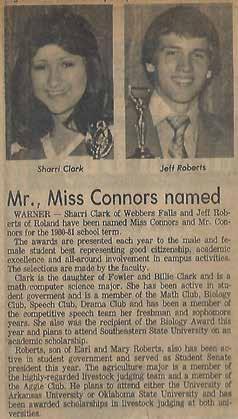 Sharri Clark
Jeff Roberts
Mr., Miss Connors named
WARNER — Sharri Clark of Webbers Falls and Jeff Rob-
erts of Roland have been named Miss Connors and Mr. Con-
nors for the 1980-81 school term.
The awards are presented each year to the male and fe-
male student best representing good citizenship, academic
excellence and all-around involvement in campus activities.
The selections are made by the faculty.
Clark is the daughter of Fowler and Billie Clark and is a
math/computer science major. She has been active in stu-
dent government and is a member of the Math Club, Biology
Club, Speech Club, Drama Club and has been a member of
the competitive speech team her freshman and sophomore
years. She also was the recipient of the Biology Award this
year and plans to attend Southeastern State University on an
academic scholarship.
Roberts, son of Earl and Mary Roberts, also has been ac-
tive in student government and served as Student Senate
president this year. The agriculture major is a member of
the highly-regarded livestock judging team and a member of
the Aggie Club. He plans to attend either the University of
Arkansas University or Oklahoma State University and has
been awarded scholarships in livestock judging at both uni-
versities.